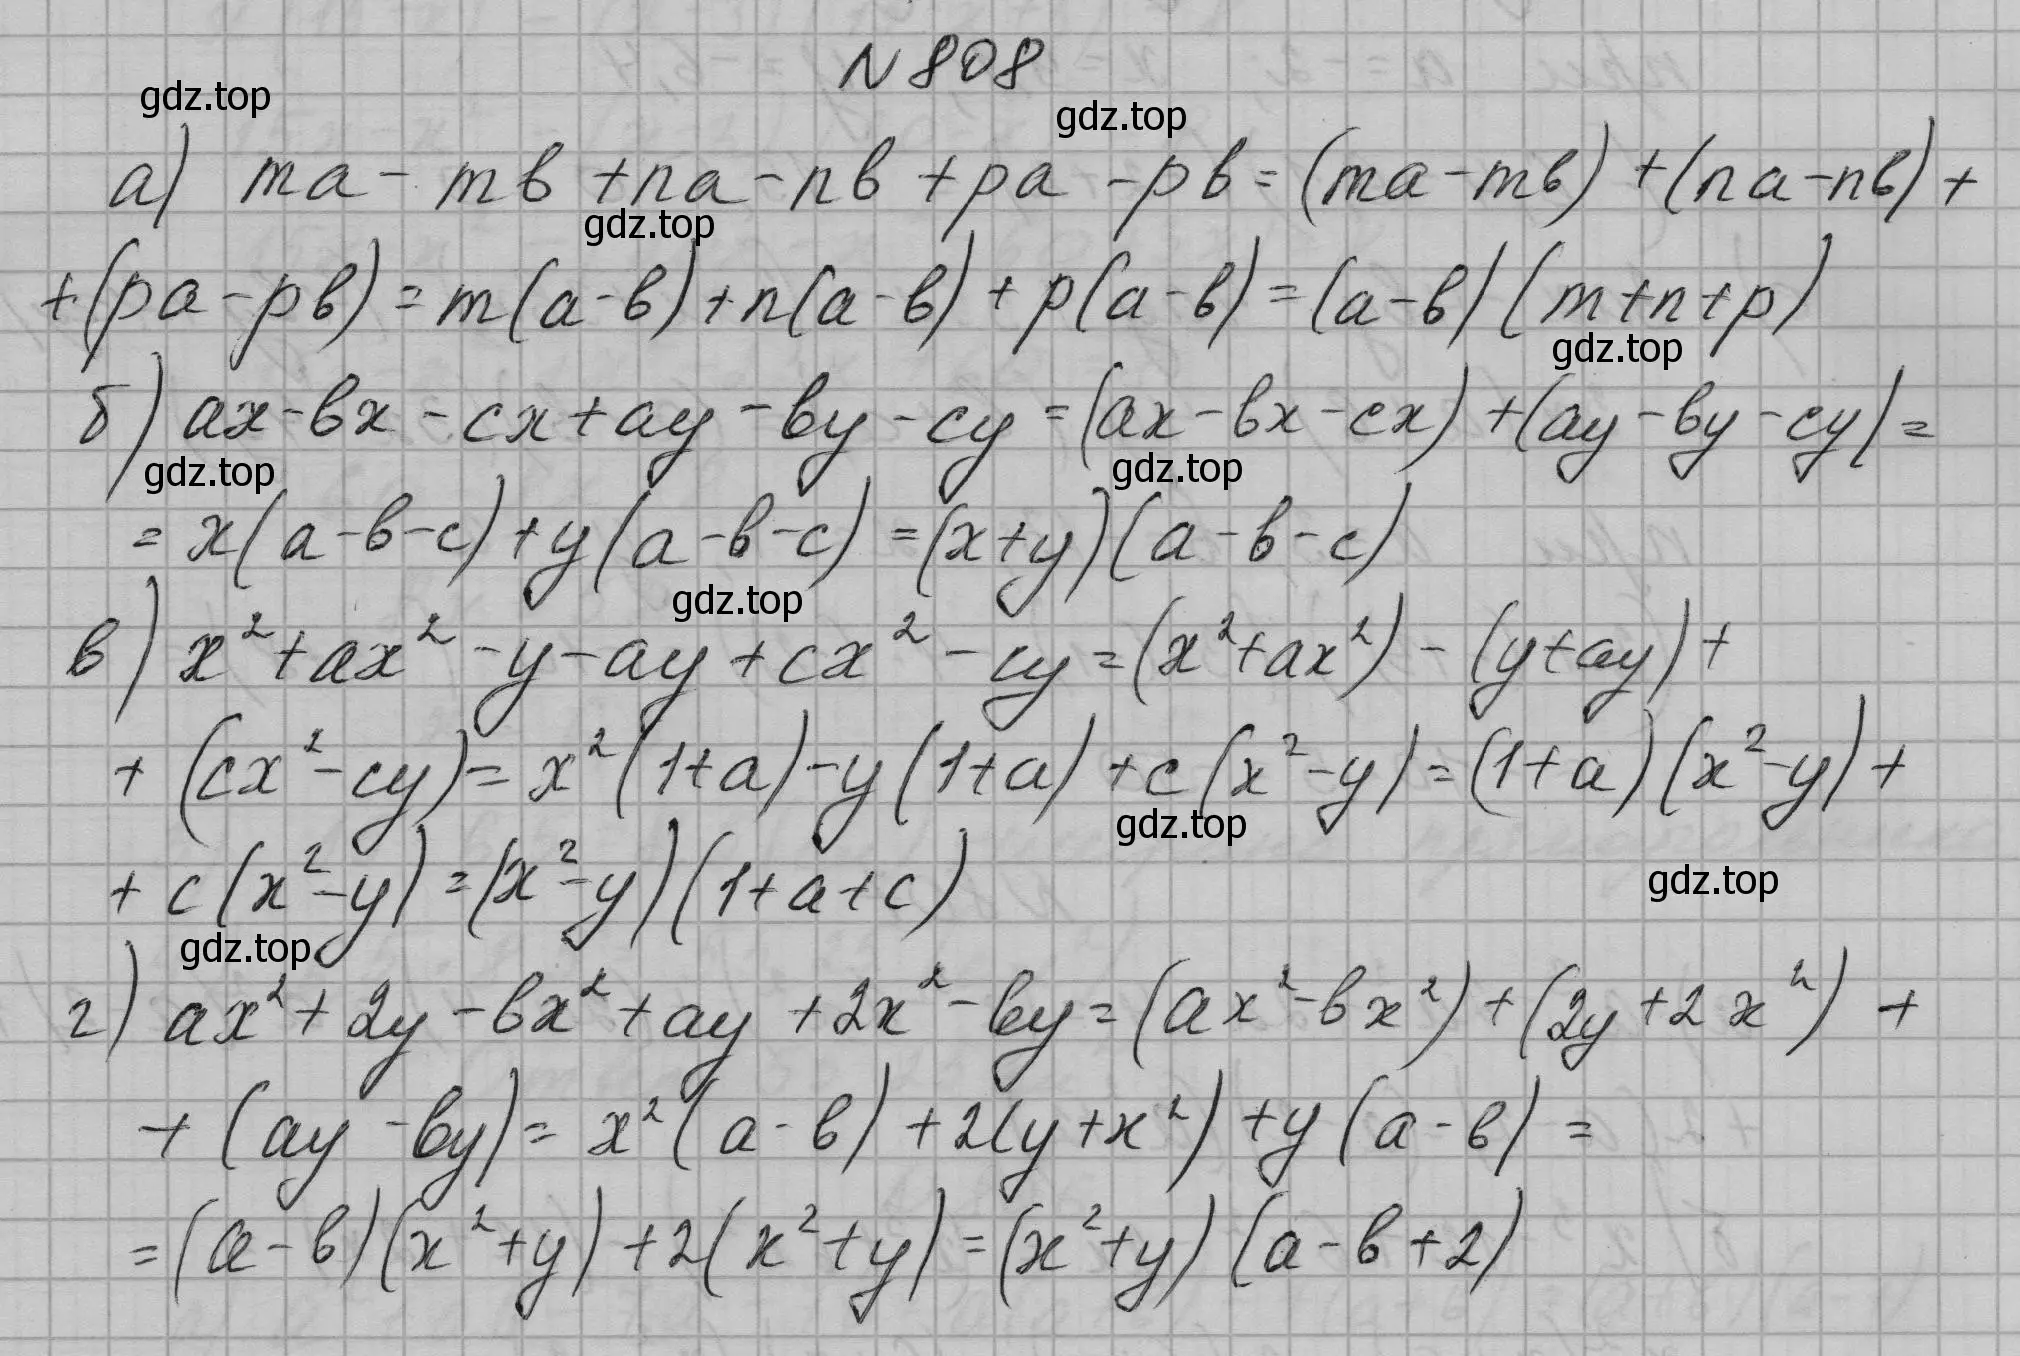 N 808
gdz.top
gdz.top
а) ma - mb + na - nb + pa - pb = (ma - mb) + (na - nb) +
gdz.top
+ (pa - pb) = m(a - b) + n(a - b) + p(a - b) = (a - b)(m + n + p)
gdz.top
б) ax - bx - cx + ay - by - cy = (ax - bx - cx) + (ay - by - cy) =
gdz.top
gdz.top
= x(a - b - c) + y(a - b - c) = (x + y)(a - b - c)
gdz.top
в) x² + ax² - y - ay + cx² - cy = (x² + ax²) - (y + ay) +
+ (cx² - cy) = x²(1 + a) - y(1 + a) + c(x² - y) = (1 + a)(x² - y) +
gdz.top
+ c(x² - y) = (x² - y)(1 + a + c)
gdz.top
gdz.top
г) ax² + 2y - bx² + ay + 2x² - by = (ax² - bx²) + (2y + 2x²) +
+ (ay - by) = x²(a - b) + 2(y + x²) + y(a - b) =
= (a - b)(x² + y) + 2(x² + y) = (x² + y)(a - b + 2)